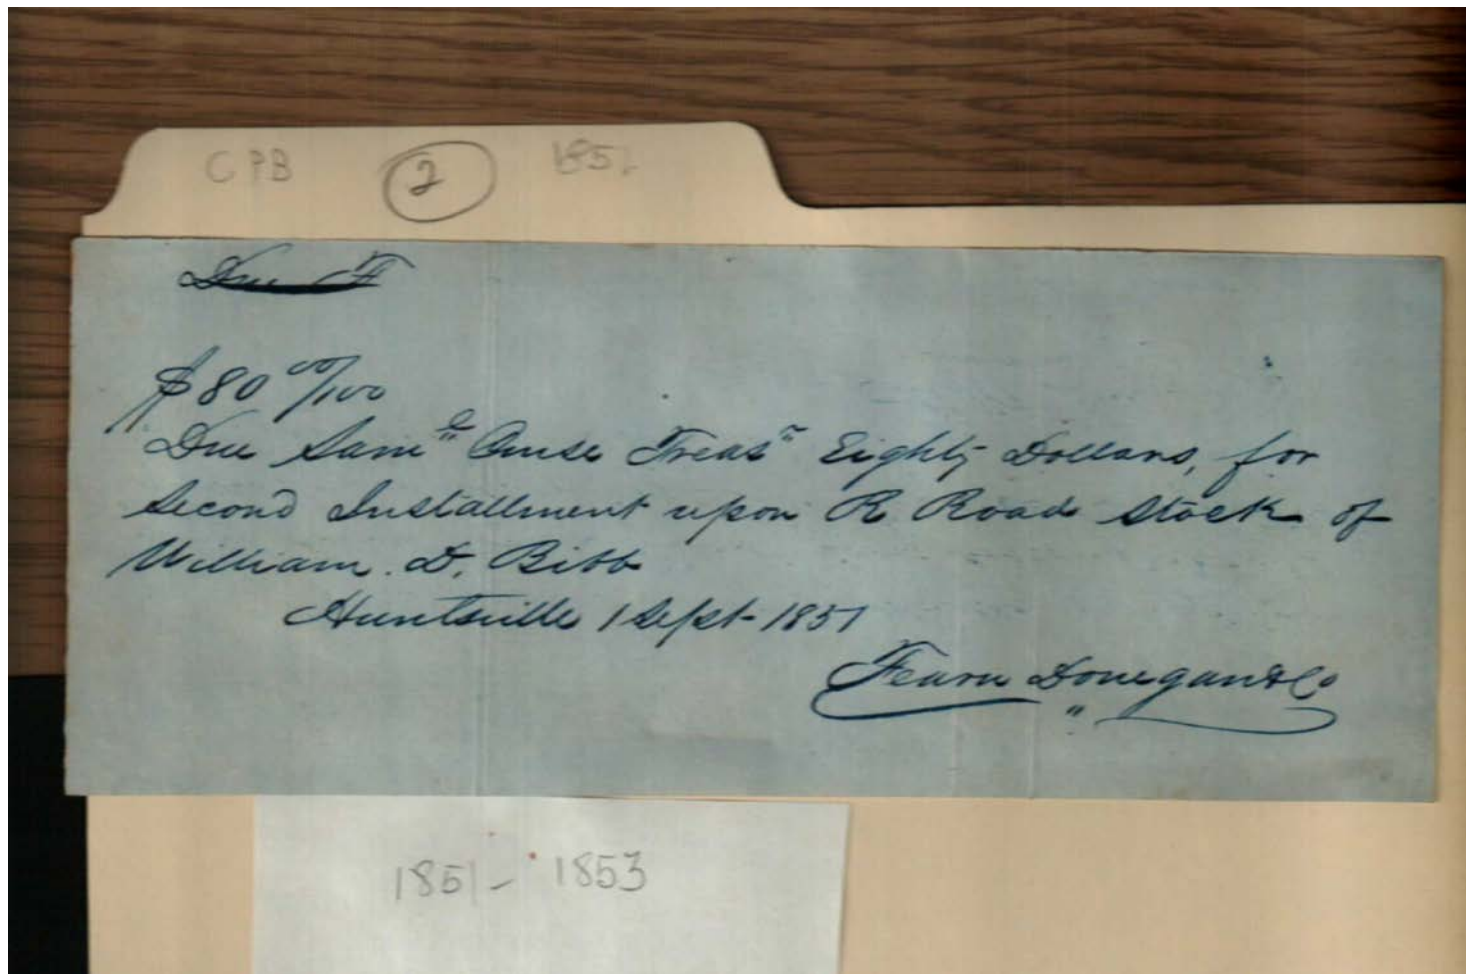 CPB 2 185
Due F
$80 00/100
Due Saml Cruse Treasr Eighty Dollars, for
Second Installment upon R Road Stock of
William. D. Bibb
Huntsville 1 Sept 1851
Fearn Donegan & Co
1851 - 1853